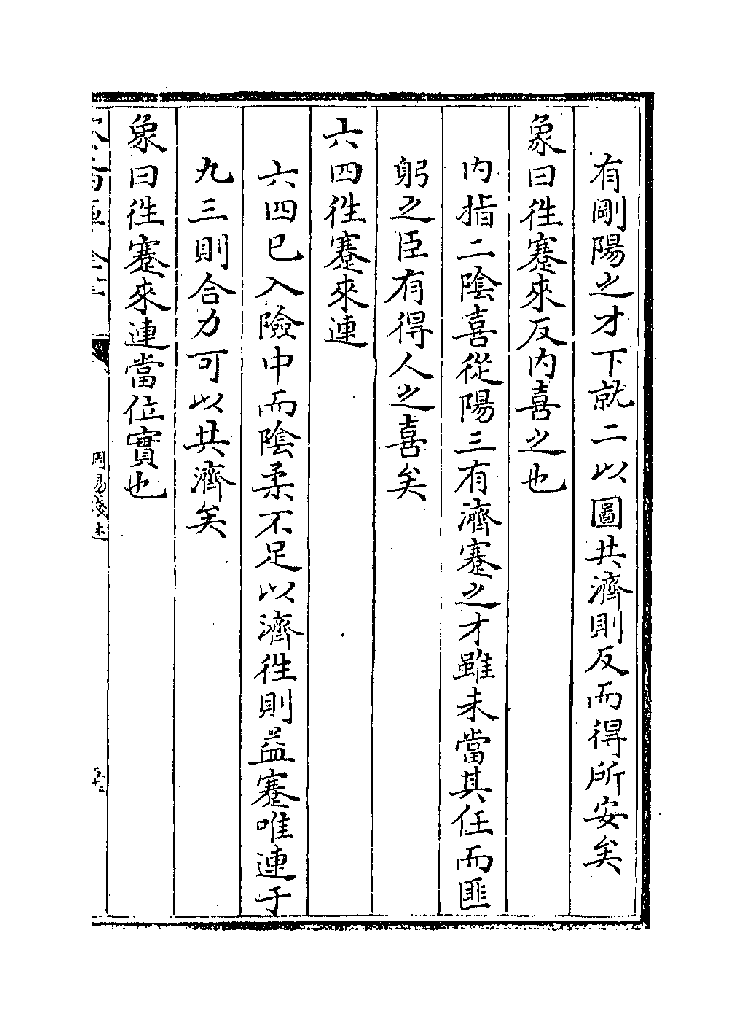 有剛陽之才下就二以圖共濟則反而得所安矣
象曰徃蹇來反内喜之也
内指二陰喜從陽三有濟蹇之才雖未當其任而匪
躬之臣有得人之喜矣
六四徃蹇來連
六四已入險中而陰柔不足以濟徃則益蹇唯連于
九三則合力可以共濟矣
象曰徃蹇來連當位實也
周易淺述